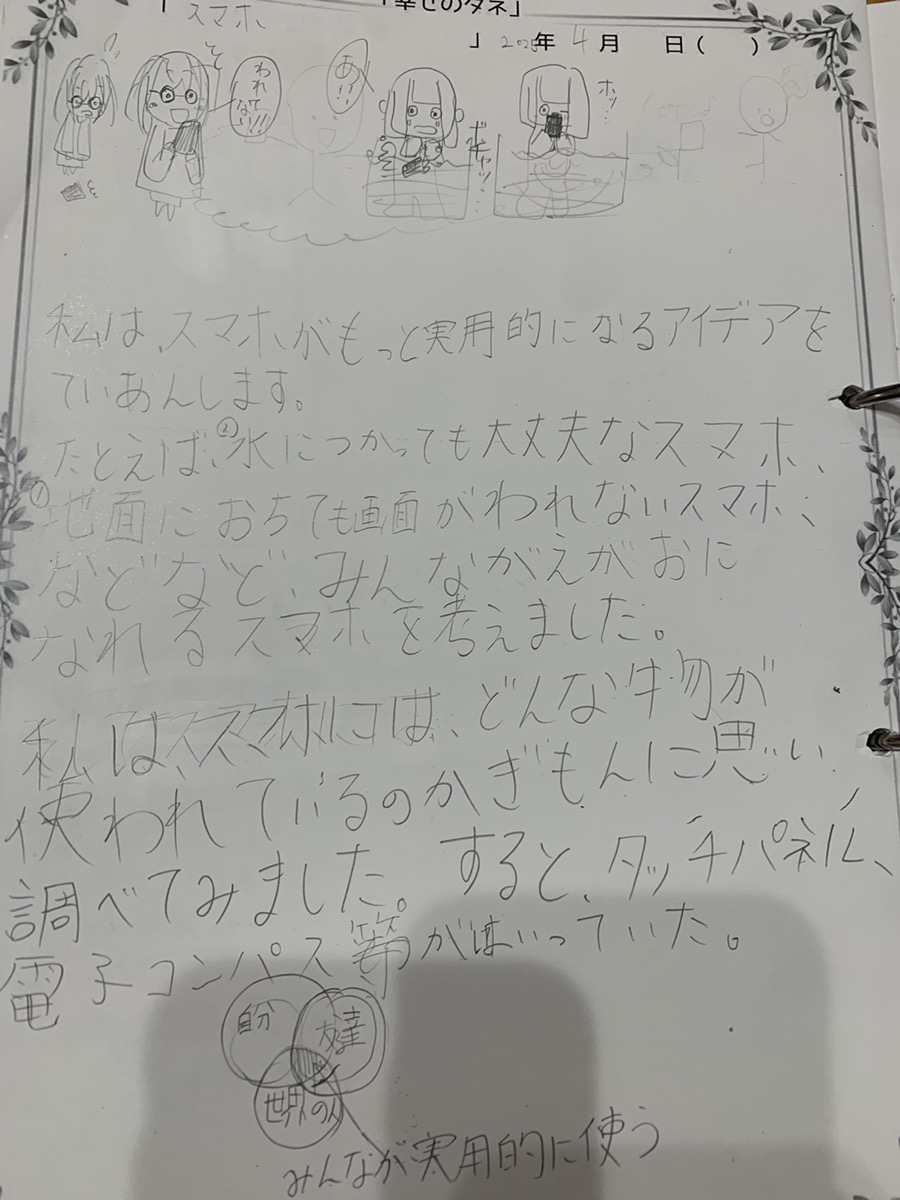 「スマホ
「幸せのタネ」
」 年 4月 日( )
われてない!!
あ!!
ギャッ!
ホッ…
私は、スマホがもっと実用的になるアイデアを
ていあんします。
たとえば、②水につかっても大丈夫なスマホ、
①地面におちても画面がわれないスマホ、
などなど、みんながえがおに
なれるスマホを考えました。
私は、スマホには、どんな物が
使われているのかぎもんに思い、
調べてみました。すると、タッチパネル、
電子コンパス等がはいっていた。
自分
友達
世界の人
みんなが実用的に使う